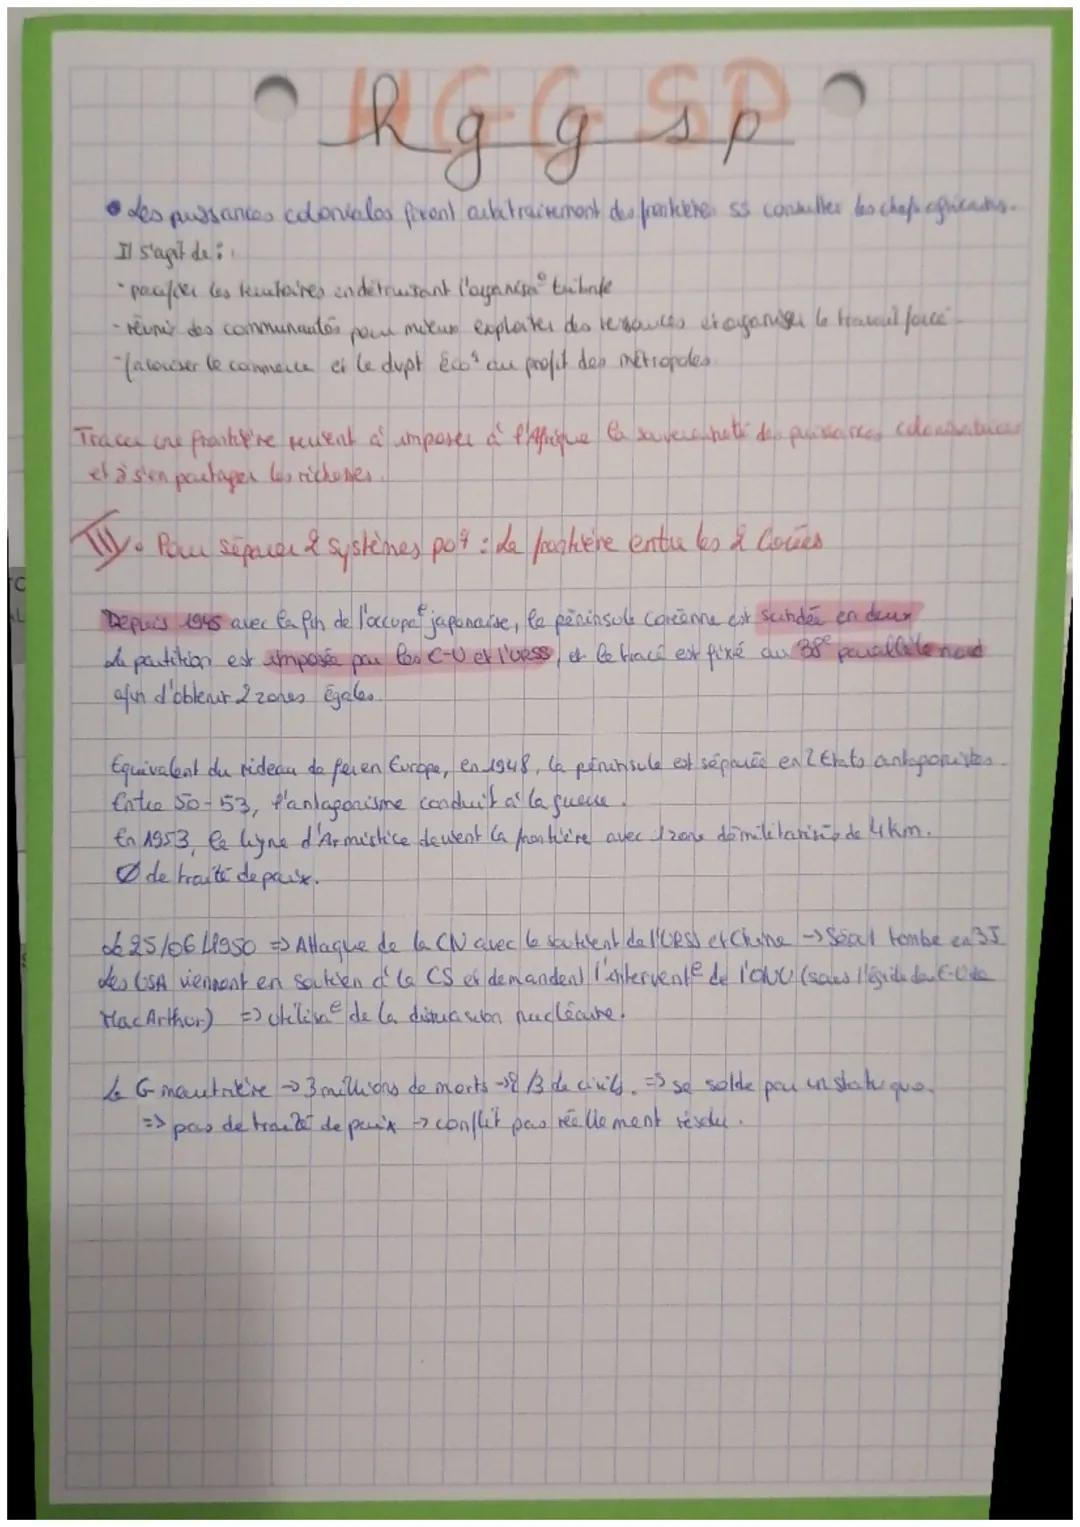 HGGSP
hggsp
• Les puissances coloniales fixent arbitrairement des frontières ss consulter les chefs africains.
Il s'agit de :
- pacifier les territoires en détruisant l'organisa° tribale
- réunir des communautés pour mieux exploiter des ressources et organiser le travail forcé
- favoriser le commerce et le dvpt éco^q au profit des métropoles
Tracer une frontière revient à imposer à l'Afrique la souveraineté des puissances colonisatrices
et à s'en partager les richesses.
III. Pour séparer 2 systèmes po^q : La frontière entre les 2 Corées
Depuis 1945 avec la fin de l'occupa° japonaise, la péninsule coréenne est scindée en deux
La partition est imposée par les E-U et l'URSS, et le tracé est fixé au 38° parallèle nord
afin d'obtenir 2 zones égales.
Equivalent du rideau de fer en Europe, en 1948, la péninsule est séparée en 2 Etats antagonistes.
Entre 50-53, l'antagonisme conduit à la guerre.
En 1953, la ligne d'Armistice devient la frontière avec 1 zone démilitarisée de 4 km.
Ø de traité de paix.
Le 25/06/1950 => Attaque de la CN avec le soutient de l'URSS et Chine -> Séoul tombe en 3J
Les USA viennent en soutien à la CS et demandent l'intervent° de l'ONU (sous l'égide des E-U de
MacArthur) => utilisa° de la dissuasion nucléaire.
La G meurtrière -> 3 millions de morts -> 2/3 de civils. => se solde par un statu quo.
=> pas de traité de paix -> conflit pas réellement résolu.